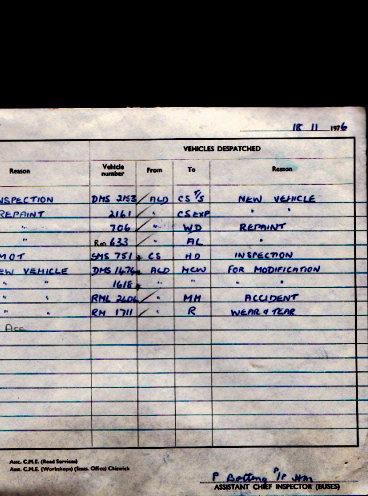 18 11 1976
VEHICLES DESPATCHED
Reason Vehicle number From To Reason
NSPECTION DMS 2153 ALD CS T/S NEW VEHICLE
REPAINT 2161 " CS EXP " "
" 706 " WD REPAINT
" RM 633 " AL "
MOT SMS 751 CS HD INSPECTION
EW VEHICLE DMS 1676 ALD MCW FOR MODIFICATION
" " 1618 " " " "
" " RML 2406 " MH ACCIDENT
" " RM 1711 " R WEAR & TEAR
Acc
Asst. C.M.E. (Road Services)
Asst. C.M.E. (Workshops) (Statis. Office) Chiswick
P Botting P/P
ASSISTANT CHIEF INSPECTOR (BUSES)